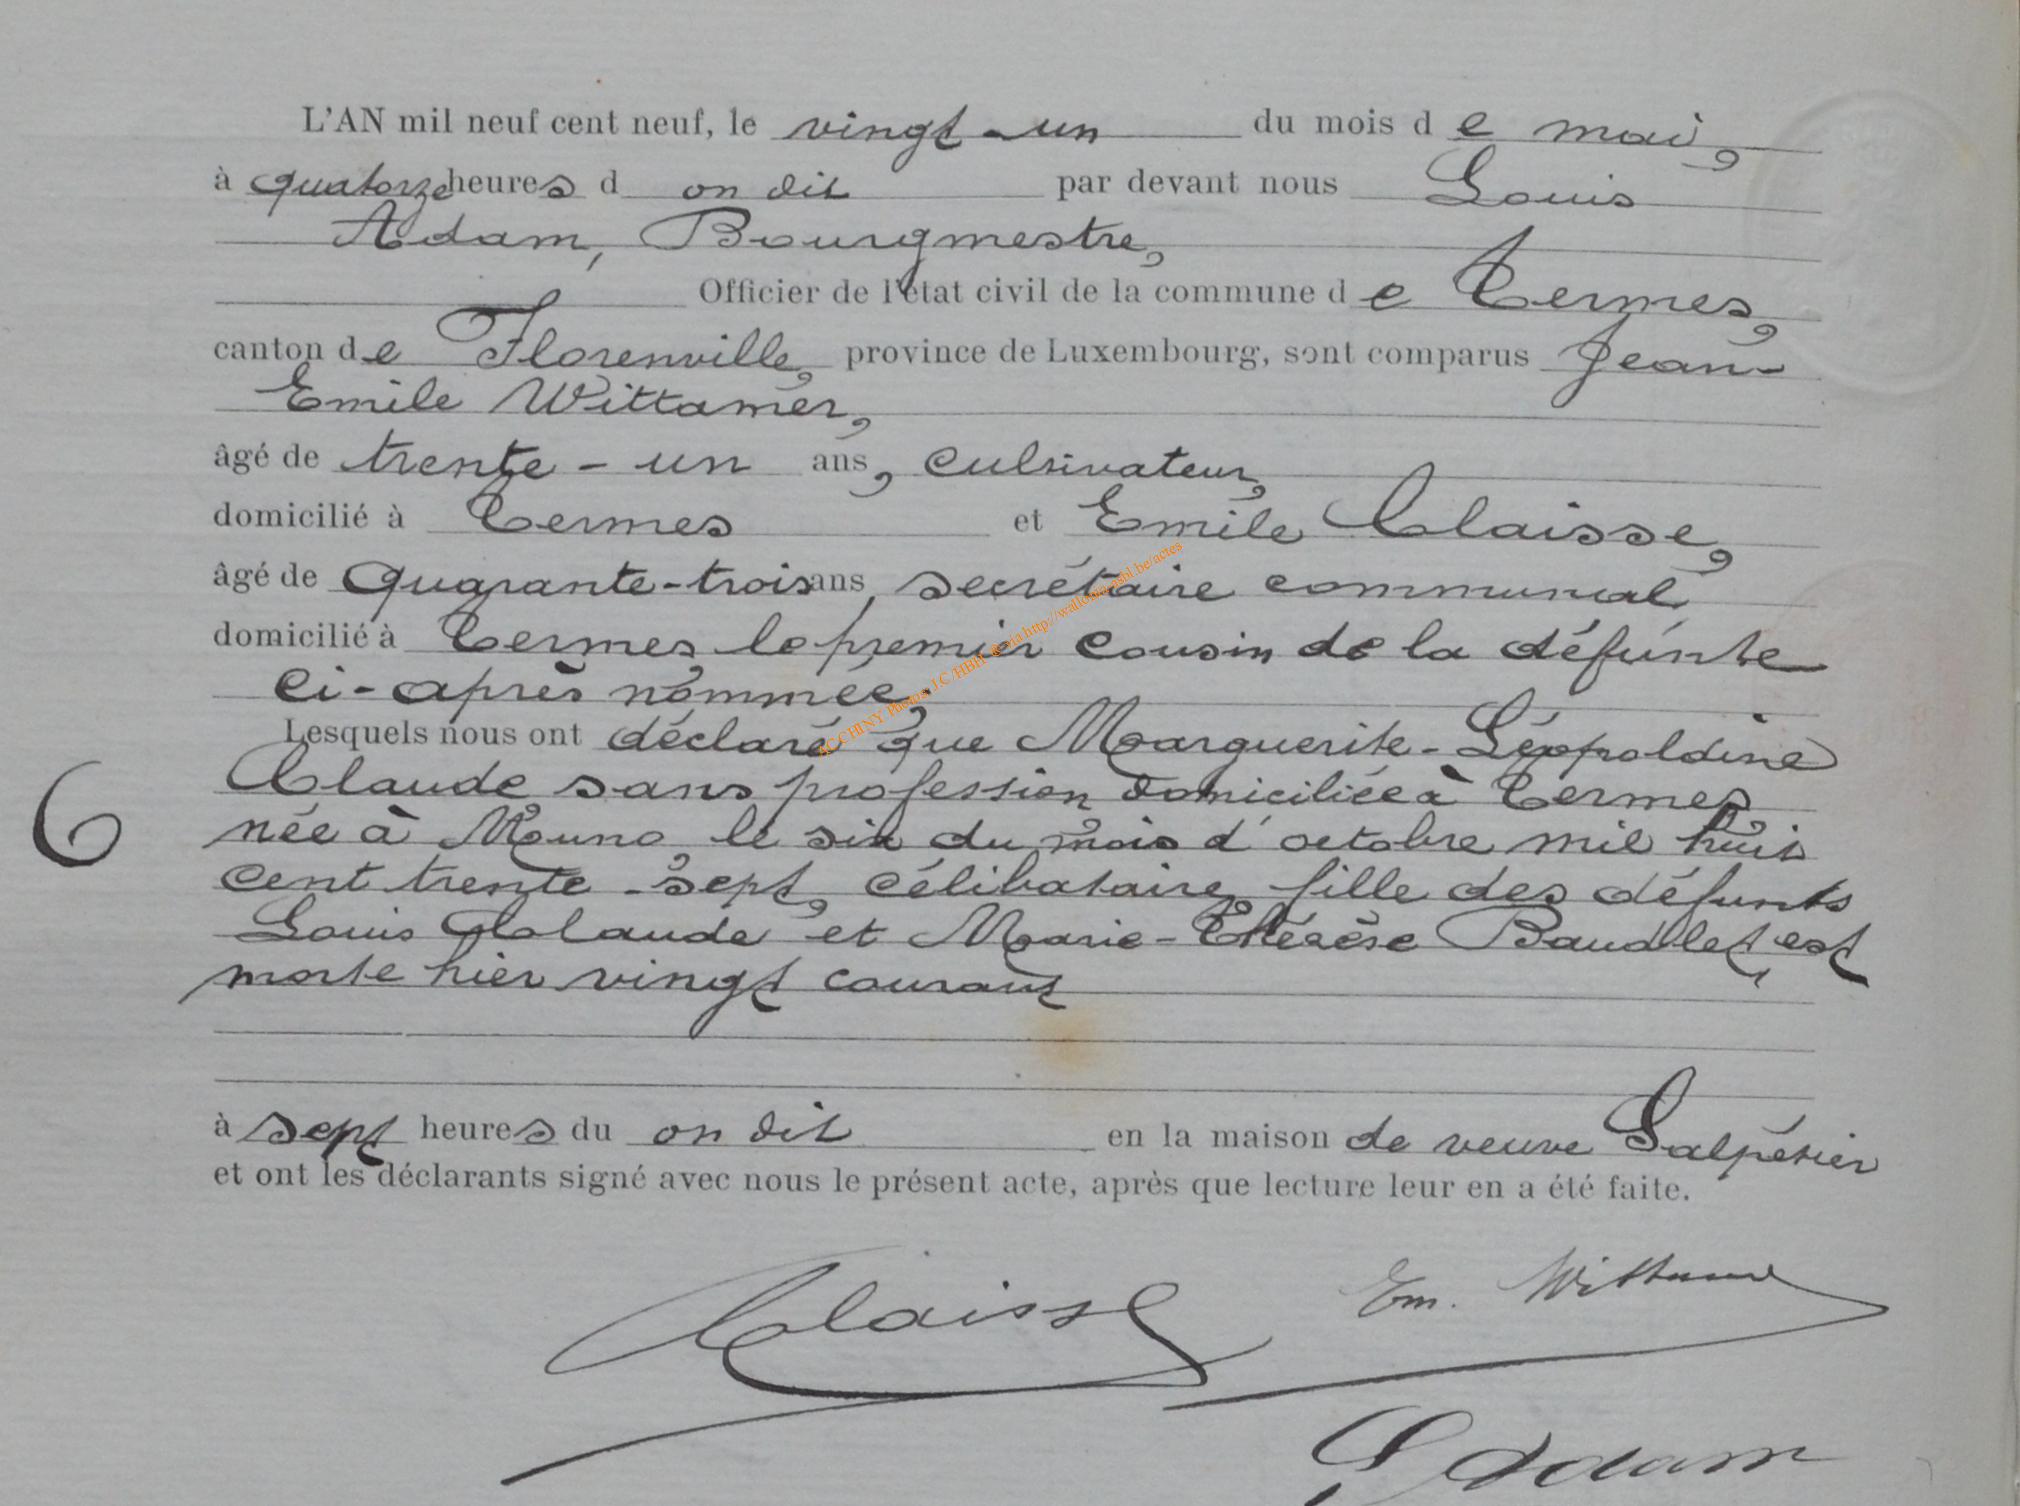 L'AN mil neuf cent neuf, le vingt-un du mois de mai,
à quatorze heures d on dit par devant nous Louis
Adam, Bourgmestre,
Officier de l'état civil de la commune de Termes,
canton de Florenville, province de Luxembourg, sont comparus Jean-
Emile Wittamer,
âgé de trente-un ans, cultivateur,
domicilié à Termes et Emile Claisse,
âgé de quarante-trois ans, secrétaire communal,
domicilié à Termes, le premier cousin de la défunte
ci-après nommée,
Lesquels nous ont déclaré que Marguerite-Léopoldine
Claude sans profession domiciliée à Termes,
6
née à Muno, le six du mois d'octobre mil huit
cent trente-sept, célibataire, fille des défunts
Louis Claude et Marie-Thérèse Baudlet, est
morte hier vingt courant
à sept heures du on dit en la maison de veuve Salpétier
et ont les déclarants signé avec nous le présent acte, après que lecture leur en a été faite.
Claisse Em. Wittamer
L Adam